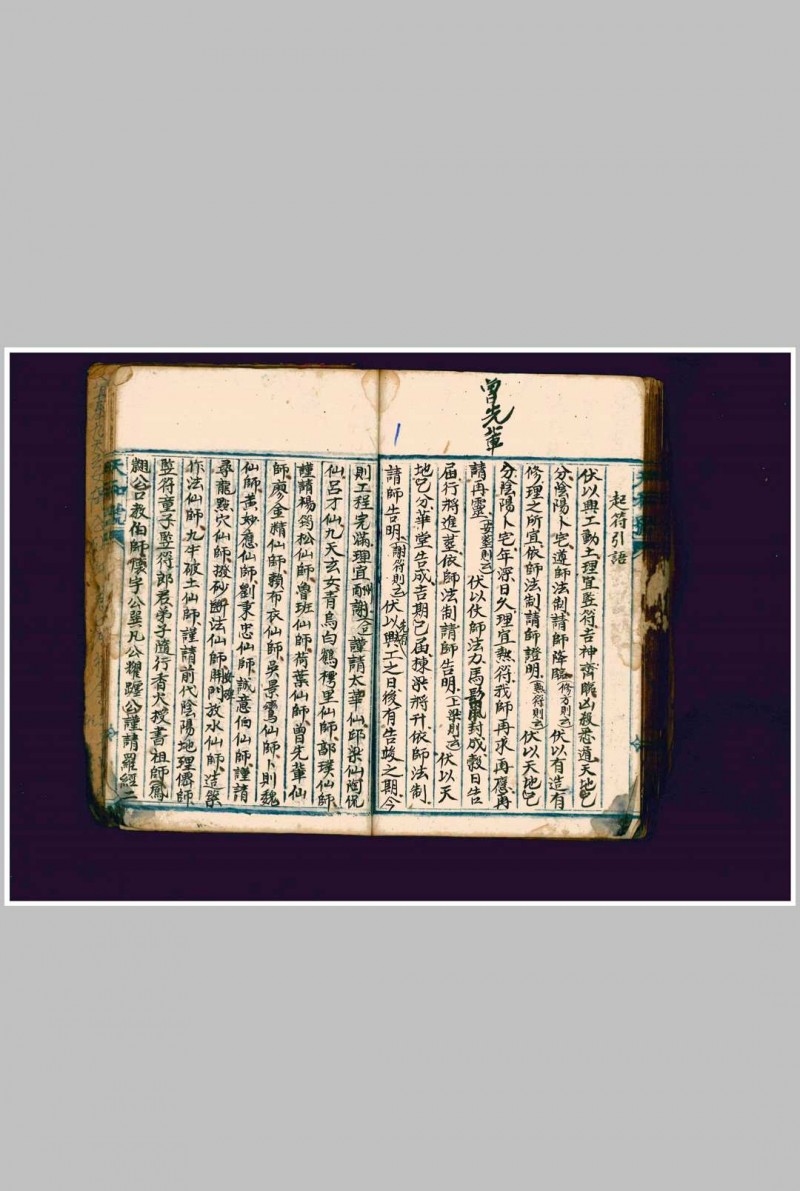 曾先輩
起符引語
伏以興工動土理宜竪符吉神齊臨凶殺悉遁天地已
分陰陽卜宅遵師法制請師降臨(修方則云)伏以有造有
修理之所宜依師法制請師證明(熱符則云)伏以天地已
分陰陽卜宅年深日久理宜熱符我師再求再應再
請再靈(安葬則云)伏以伏師法力馬鬛封成穀日告
届行將進塟依師法制請師告明(上梁則云)伏以天
地已分華堂告成吉期已届棟梁將升依師法制
請師告明(謝符則云)伏以興工之日後有告竣之期今
則工程完滿理宜酧謝(合云)謹請太華仙邱梁仙陶侃
仙呂才仙九天玄女青烏白鶴樗里仙師郭璞仙師
謹請楊筠松仙師魯班仙師荷葉仙師曾先輩仙
師廖金精仙師賴布衣仙師吳景鸞仙師卜則魏
仙師黃妙應仙師劉秉忠仙師誠意伯仙師謹請
尋龍點穴仙師撥砂斷法仙師開門放水仙師造葬
作法仙師九牛破土仙師謹請前代陰陽地理儒師
竪符童子竪符郎君弟子隨行香火授書祖師
公謹請羅經二